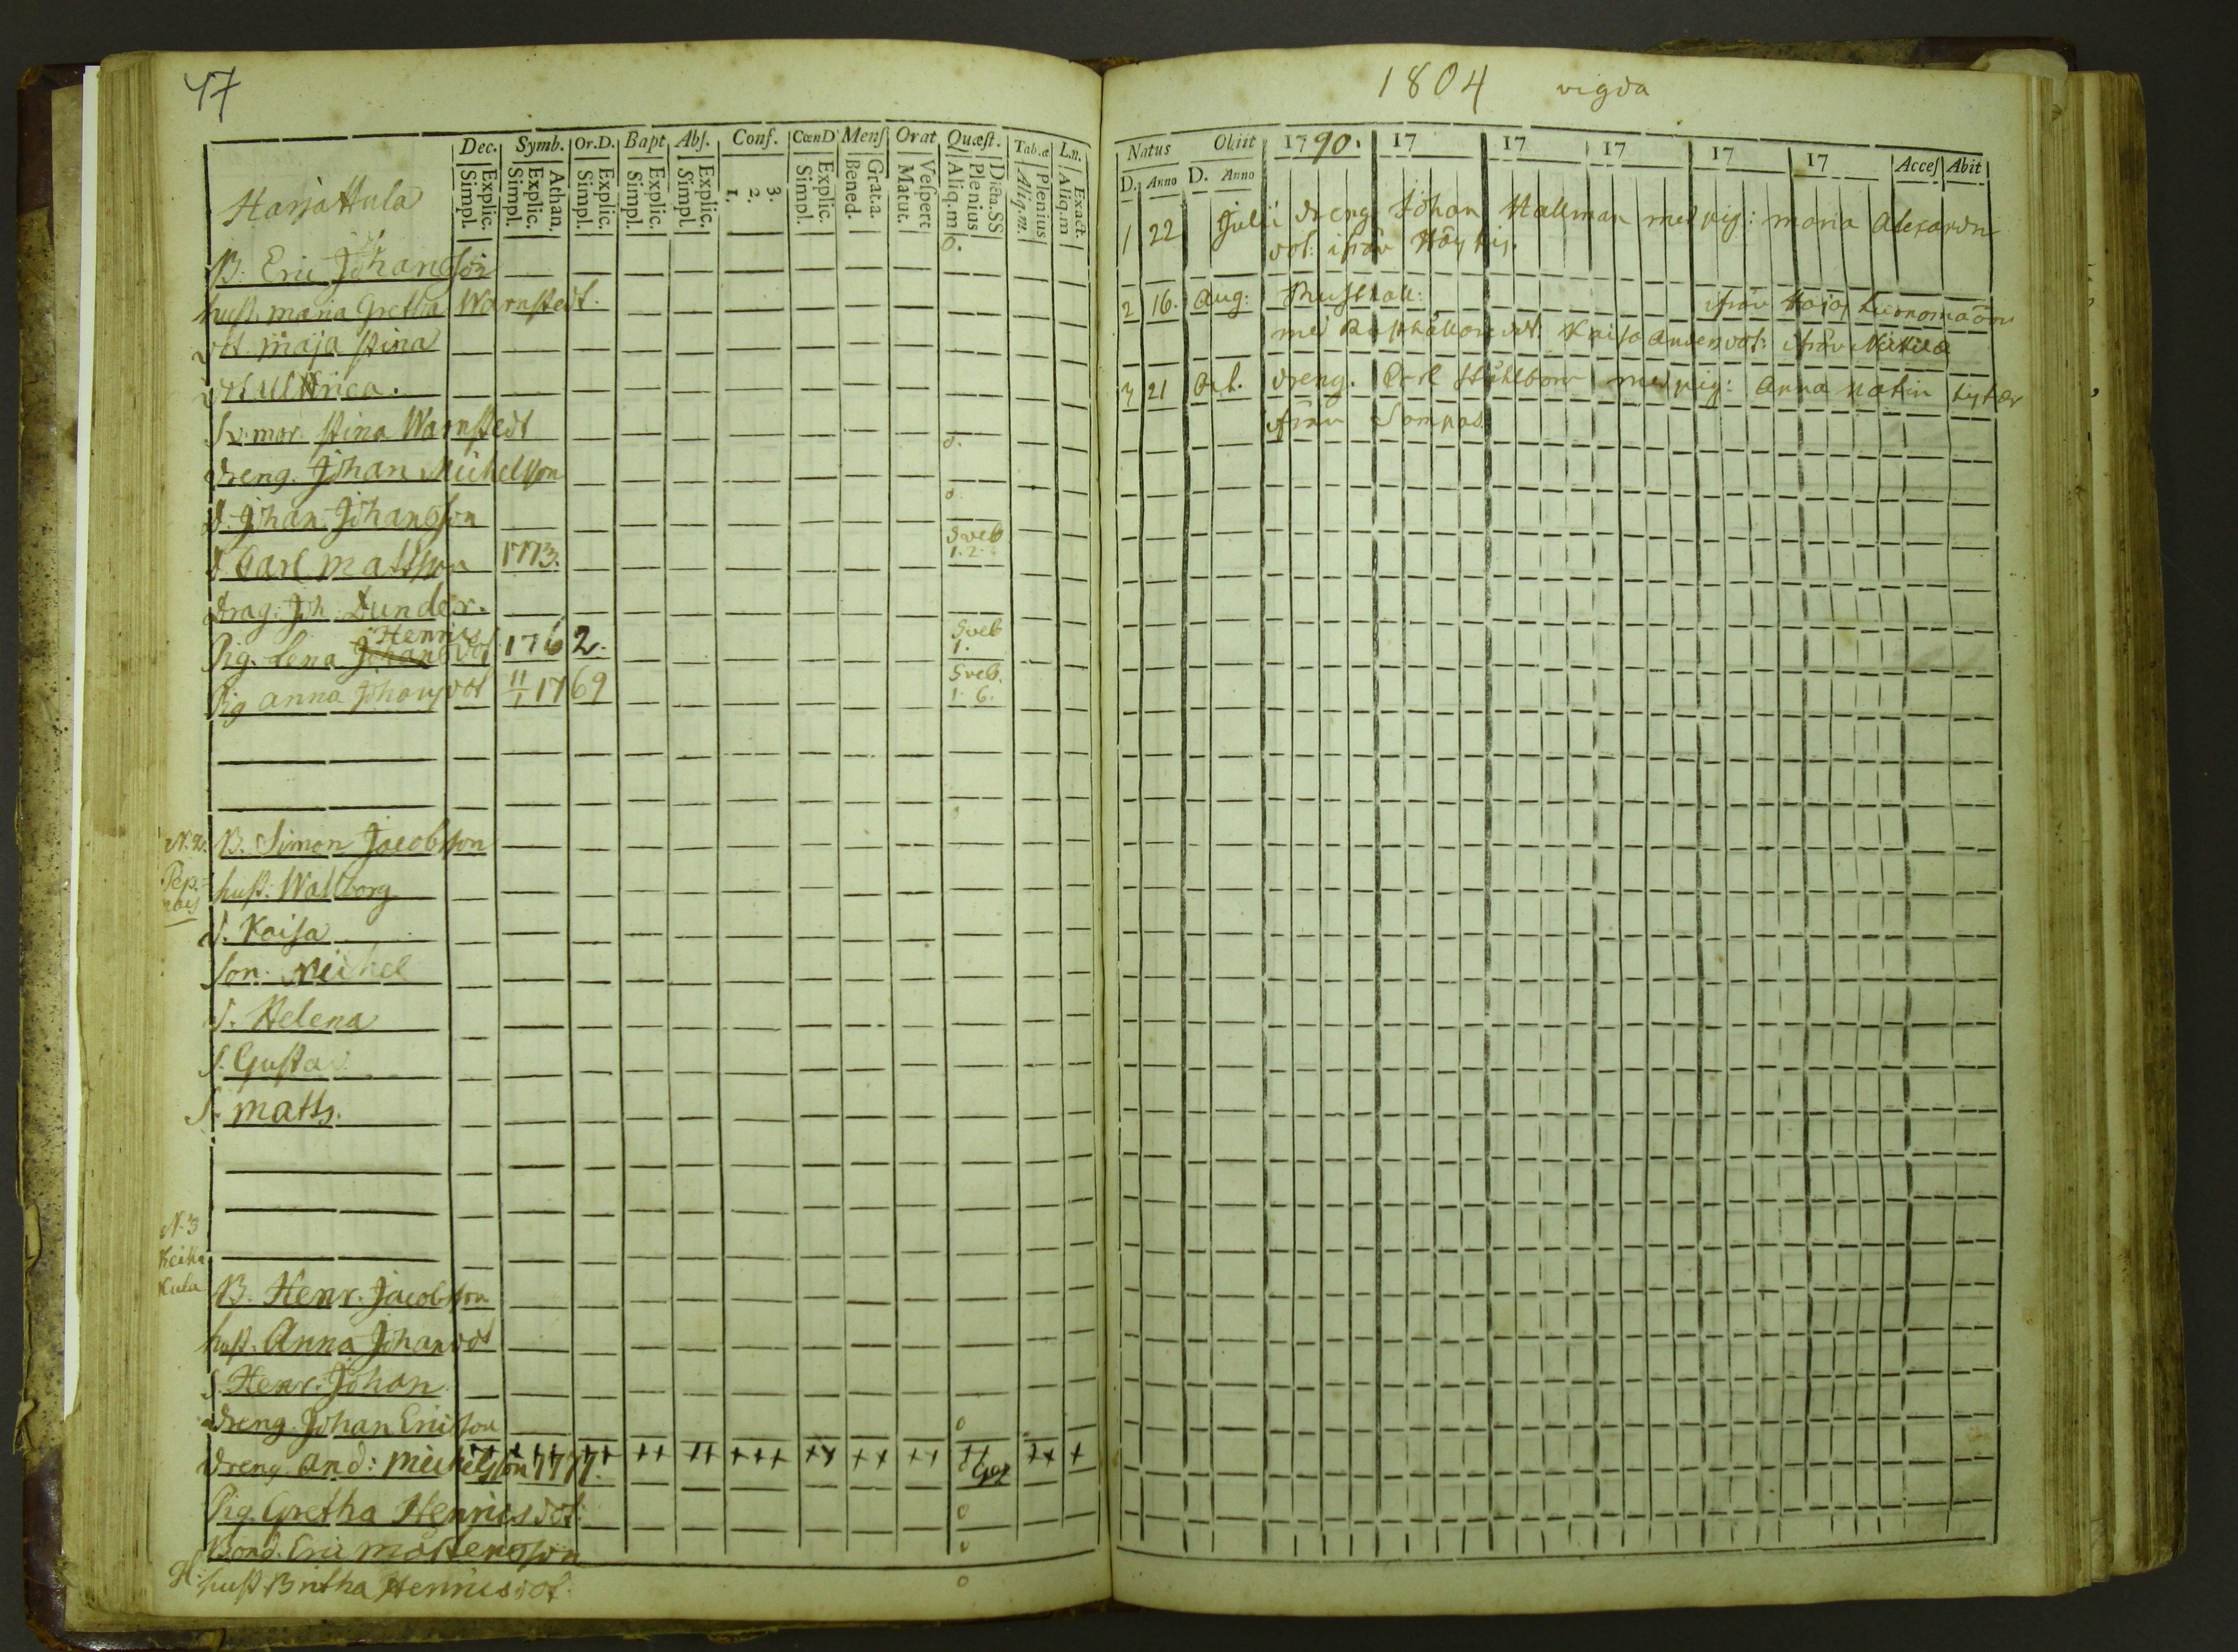 47
Dec. Symb. Or.D. Bapt Abſ. Conf. CœnD Menſ Orat Quæſt. Tab.æ L.n.
Explic. Simpl. Athan. Explic. Simpl. Explic. Simpl. Explic. Simpl. Explic. Simpl. 3. 2. 1. Explic. Simpl. Grat.a. Bened. Veſpert Matut. Dicta.SS Plenius Aliq.m Plenius Aliq.m. Exact. Aliq.m
Harjattula
B. Eric Johansson
hust. maria Gretha Warnstedt.
dot. maja stina
dot Ulrica.
Sv:mor. stina Warnstedt
dreng. Johan Michelsson
d. Johan Johansson
d. Carl mattsson 1773. Sveb 1.2.
drag. Joh. Dunder.
Henrics
Pig. Lena Johansdot 1762. Sveb 1.
Pig anna Johansdot 11/1 1769 Sveb. 1. 6.
N. 2. B. Simon Jacobsson
hust. Wallborg
d. Kaisa
son. Michel
d. Helena
S. Gusta
S. matts.
N. 3
Kula B. Henr. Jacobsson
hust. Anna Johansdot
S. Henr. Johan
dreng. Johan Ericsson
dreng. and: michelsson 1777.
Pig. Gretha Henricsdot:
Bond. Eric mårtensson
hust Britha Henricsdot.
1804 vigda
Natus Obiit 1790. 17 17 17 17 17 Acceſ Abit
D. Anno D. Anno
1 22 Julii dreng Johan Hallman med pig: maria
dot: ifrån
2 16. Aug: ifrån
med Kaisa dot: ifrån
3 21 Oct. dreng. Carl Ståhlbom med pig: anna
ifrån Sampas